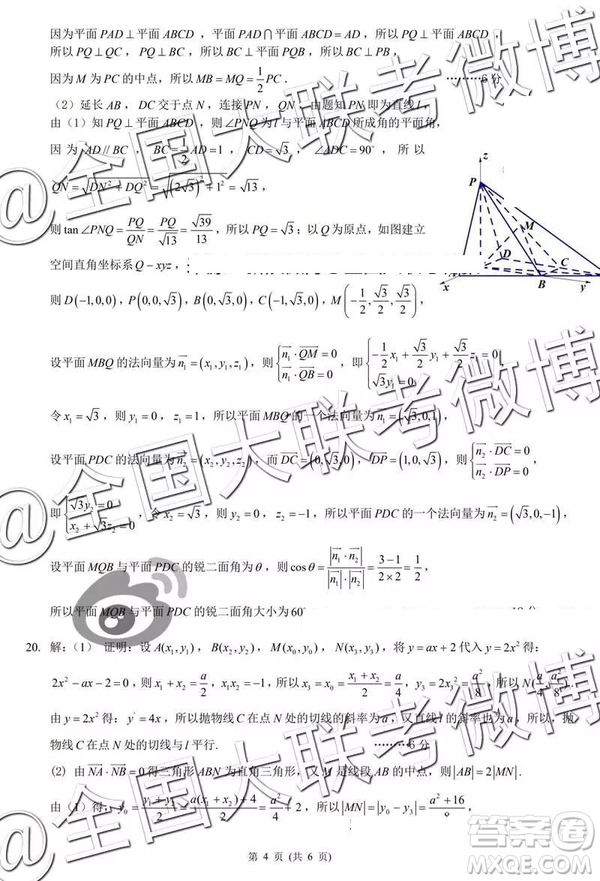 因为平面 PAD⊥平面 ABCD，平面 PAD⋂平面 ABCD = AD，所以 PQ⊥平面 ABCD，
所以 PQ⊥QC，PQ⊥BC，所以 BC⊥平面 PQB，所以 BC⊥PB，
因为 M 为 PC 的中点，所以 MB = MQ = 1/2 PC．
（2）延长 AB，DC 交于点 N，连接 PN，QN，由题知 PN 即为直线 l，
由（1）知 PQ⊥平面 ABCD，则∠PNQ 为 l 与平面 ABCD 所成角的平面角，
因为 AD // BC，BC = 1/2 AD = 1，CD = √3，∠ADC = 90°，所以
QN = √(DN² + DQ²) = √((2√3)² + 1²) = √13，
则 tan∠PNQ = PQ/QN = PQ/√13 = √39/13，所以 PQ = √3；以 Q 为原点，如图建立
空间直角坐标系 Q − xyz，
则 D(−1,0,0)，P(0,0,√3)，B(0,√3,0)，C(−1,√3,0)，M(−1/2, √3/2, √3/2)，
z
P
M
D
C
B
x
y
设平面 MBQ 的法向量为 n₁ = (x₁, y₁, z₁)，则 { n₁·QM = 0, n₁·QB = 0，即 { −1/2 x₁ + √3/2 y₁ + √3/2 z₁ = 0, √3y₁ = 0
令 x₁ = √3，则 y₁ = 0，z₁ = 1，所以平面 MBQ 的一个法向量为 n₁ = (√3,0,1)，
设平面 PDC 的法向量为 n₂ = (x₂, y₂, z₂)，而 DC = (0,√3,0)，DP = (1,0,√3)，则 { n₂·DC = 0, n₂·DP = 0，
即 { √3y₂ = 0, x₂ + √3z₂ = 0，令 x₂ = √3，则 y₂ = 0，z₂ = −1，所以平面 PDC 的一个法向量为 n₂ = (√3,0,−1)，
设平面 MQB 与平面 PDC 的锐二面角为 θ，则 cosθ = |n₁·n₂| / |n₁|·|n₂| = (3−1)/(2×2) = 1/2，
所以平面 MQB 与平面 PDC 的锐二面角大小为 60
20. 解：（1） 证明：设 A(x₁, y₁)，B(x₂, y₂)，M(x₀, y₀)，N(x₃, y₃)，将 y = ax + 2 代入 y = 2x² 得：
2x² − ax − 2 = 0，则 x₁ + x₂ = a/2，所以 x₃ = x₀ = (x₁ + x₂)/2 = a/4，y₃ = 2x₃² = a²/8，所以 N(a/4, a²/8)，
由 y = 2x² 得：y′ = 4x，所以抛物线 C 在点 N 处的切线的斜率为 a，又直线 l 的斜率也为 a，所以，抛
物线 C 在点 N 处的切线与 l 平行． ………6 分
(2) 由 NA·NB = 0 得三角形 ABN 为直角三角形，又 M 是线段 AB 的中点，则 |AB| = 2|MN|．
由（1）得：y₀ = (y₁ + y₂)/2 = (a(x₁ + x₂) + 4)/2 = a²/4 + 2，所以 |MN| = |y₀ − y₃| = (a² + 16)/8，
第 4 页 (共 6 页)
@全国大联考微博
@全国大联考微博
@全国大联考微博
答案圈
MXQE.COM